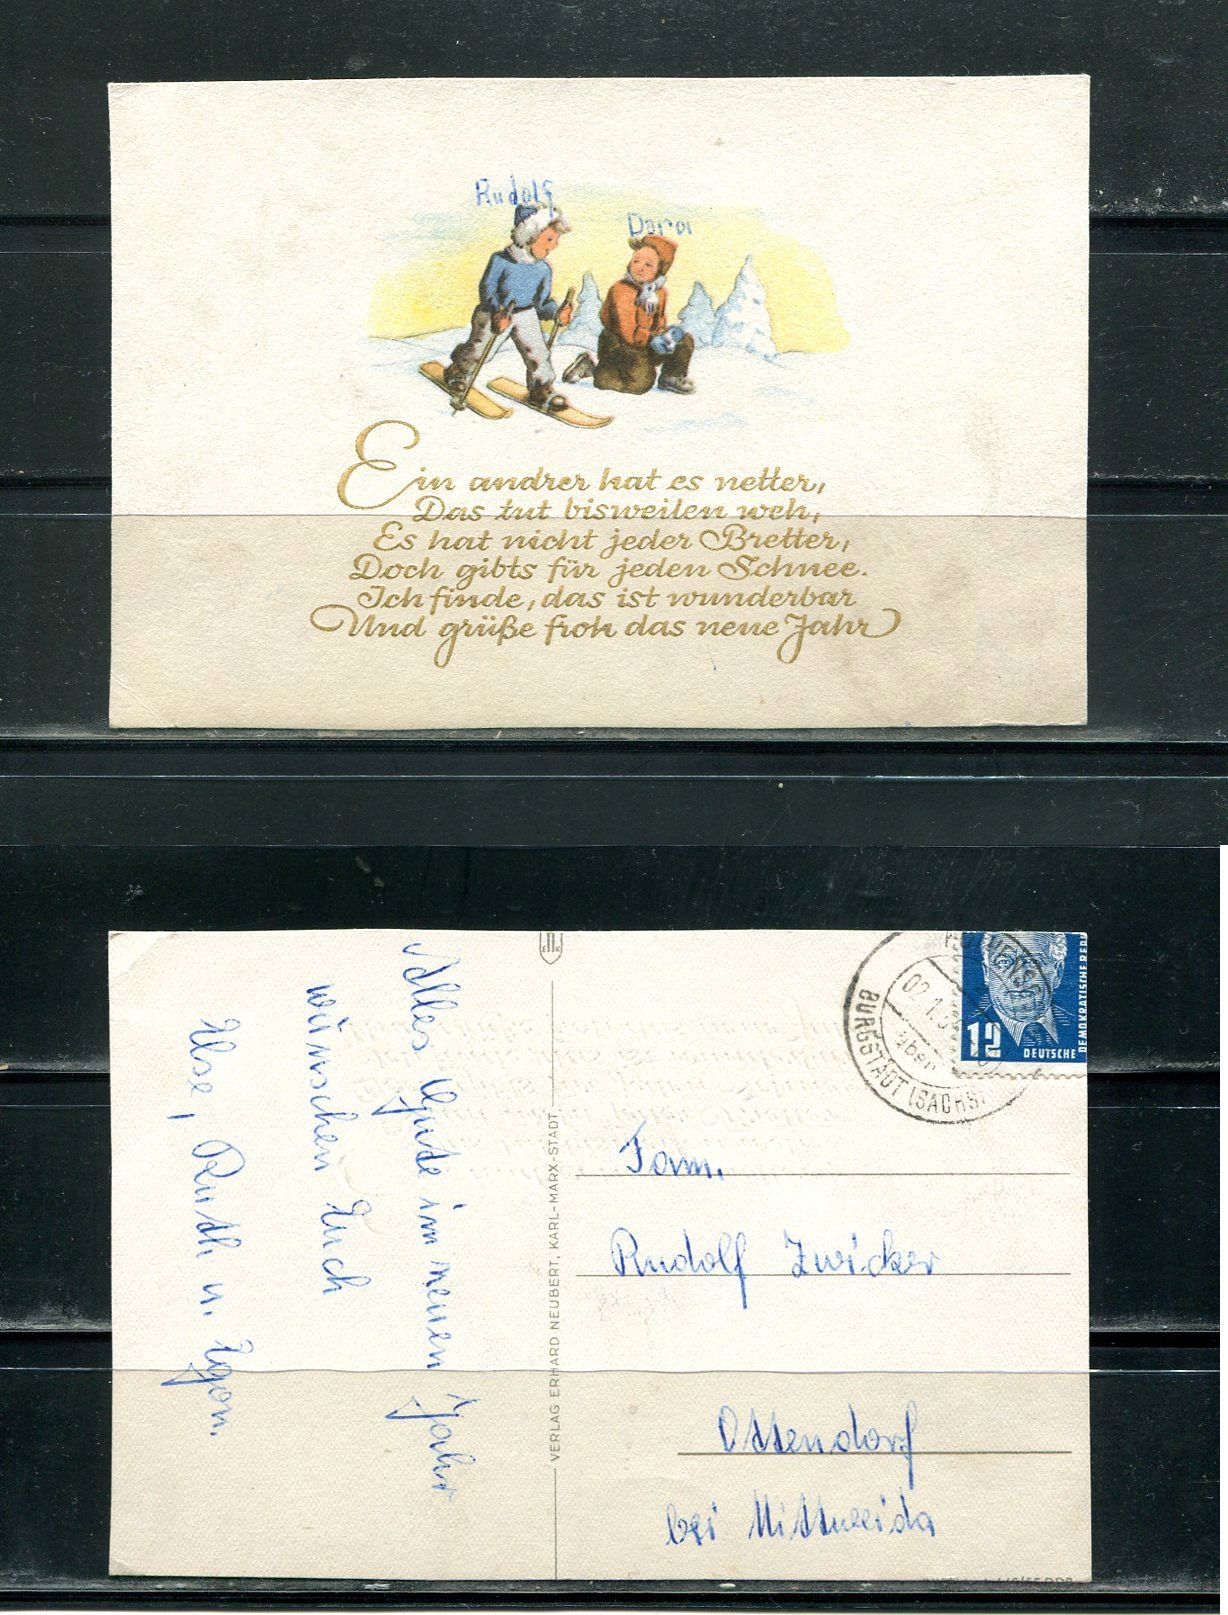 Rudolf
Dora
Ein andrer hat es netter,
Das tut bisweilen weh,
Es hat nicht jeder Bretter,
Doch gibts für jeden Schnee.
Ich finde, das ist wunderbar
Und grüße froh das neue Jahr
Alles Gute im neuen Jahr
wünschen Euch
Else, Ruth u. Egon.
VERLAG ERHARD NEUBERT, KARL-MARX-STADT
02.1.
über
BURGSTÄDT (SACHS)
12
DEUTSCHE
DEMOKRATISCHE REP
Fam.
Rudolf Zwicker
Ottendorf
bei Mittweida